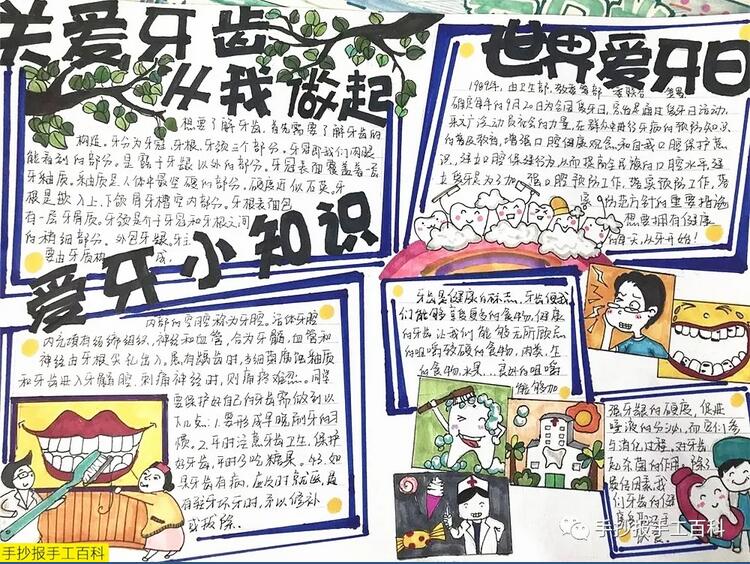 关爱牙齿
从我做起
想要了解牙齿，首先需要了解牙齿的
构造。牙分为牙冠、牙根、牙颈三个部分。牙冠即我们肉眼
能看到的部分。是露于牙龈以外的部分。牙冠表面覆盖着一层
牙釉质。釉质是人体中最坚硬的部分。硬度近似石英。牙
根是嵌入上、下颌骨牙槽窝内部分。牙根表面包
有一层牙骨质。牙颈是介于牙冠和牙根之间
的稍细部分。外包牙龈。牙主
要由牙质构成。
世界爱牙日
1989年，由卫生部、教委等部
确定每年的9月20日为全国爱牙日，宗旨是通过爱牙日活动，
广泛动员社会的力量，在群众中进行牙病防治知识
的普及教育，增强口腔健康观念和自我口腔保护意
识，建立口腔保健行为，从而提高全民族的口腔水平，建
立爱牙日是为了加强口腔预防工作，落实预防工作，落
方针的重要措施
想要拥有健康
的每天，从牙开始！
爱牙小知识
内部的空腔称为牙腔。活体牙腔
内充填有结缔组织、神经和血管，合为牙髓，血管和
神经由牙根尖孔出入。患有龋齿时，当细菌腐蚀釉质
和牙齿进入牙髓腔，刺痛神经时，则痛疼难忍。同学
要保护好自己的牙齿需做到以
下几点：1. 要形成早晚刷牙的习
惯。2. 平时注意牙齿卫生，保护
好牙齿，平时少吃糖果。3. 如
果牙齿有病，应及时就医，或
有蛀牙坏牙时，予以修补
或拔除。
牙齿是健康的标志，牙齿使我
们能够享受更多的食物，健康
的牙齿让我们能够无所顾忌
的咀嚼较硬的食物，肉类、生
的食物、水果……良好的咀嚼
能够加
强牙龈的硬度，促进
唾液的分泌，而它们参
与消化过程，对牙齿
起杀菌的作用。除了
们牙齿的健
手抄报手工百科
手抄报手工百科